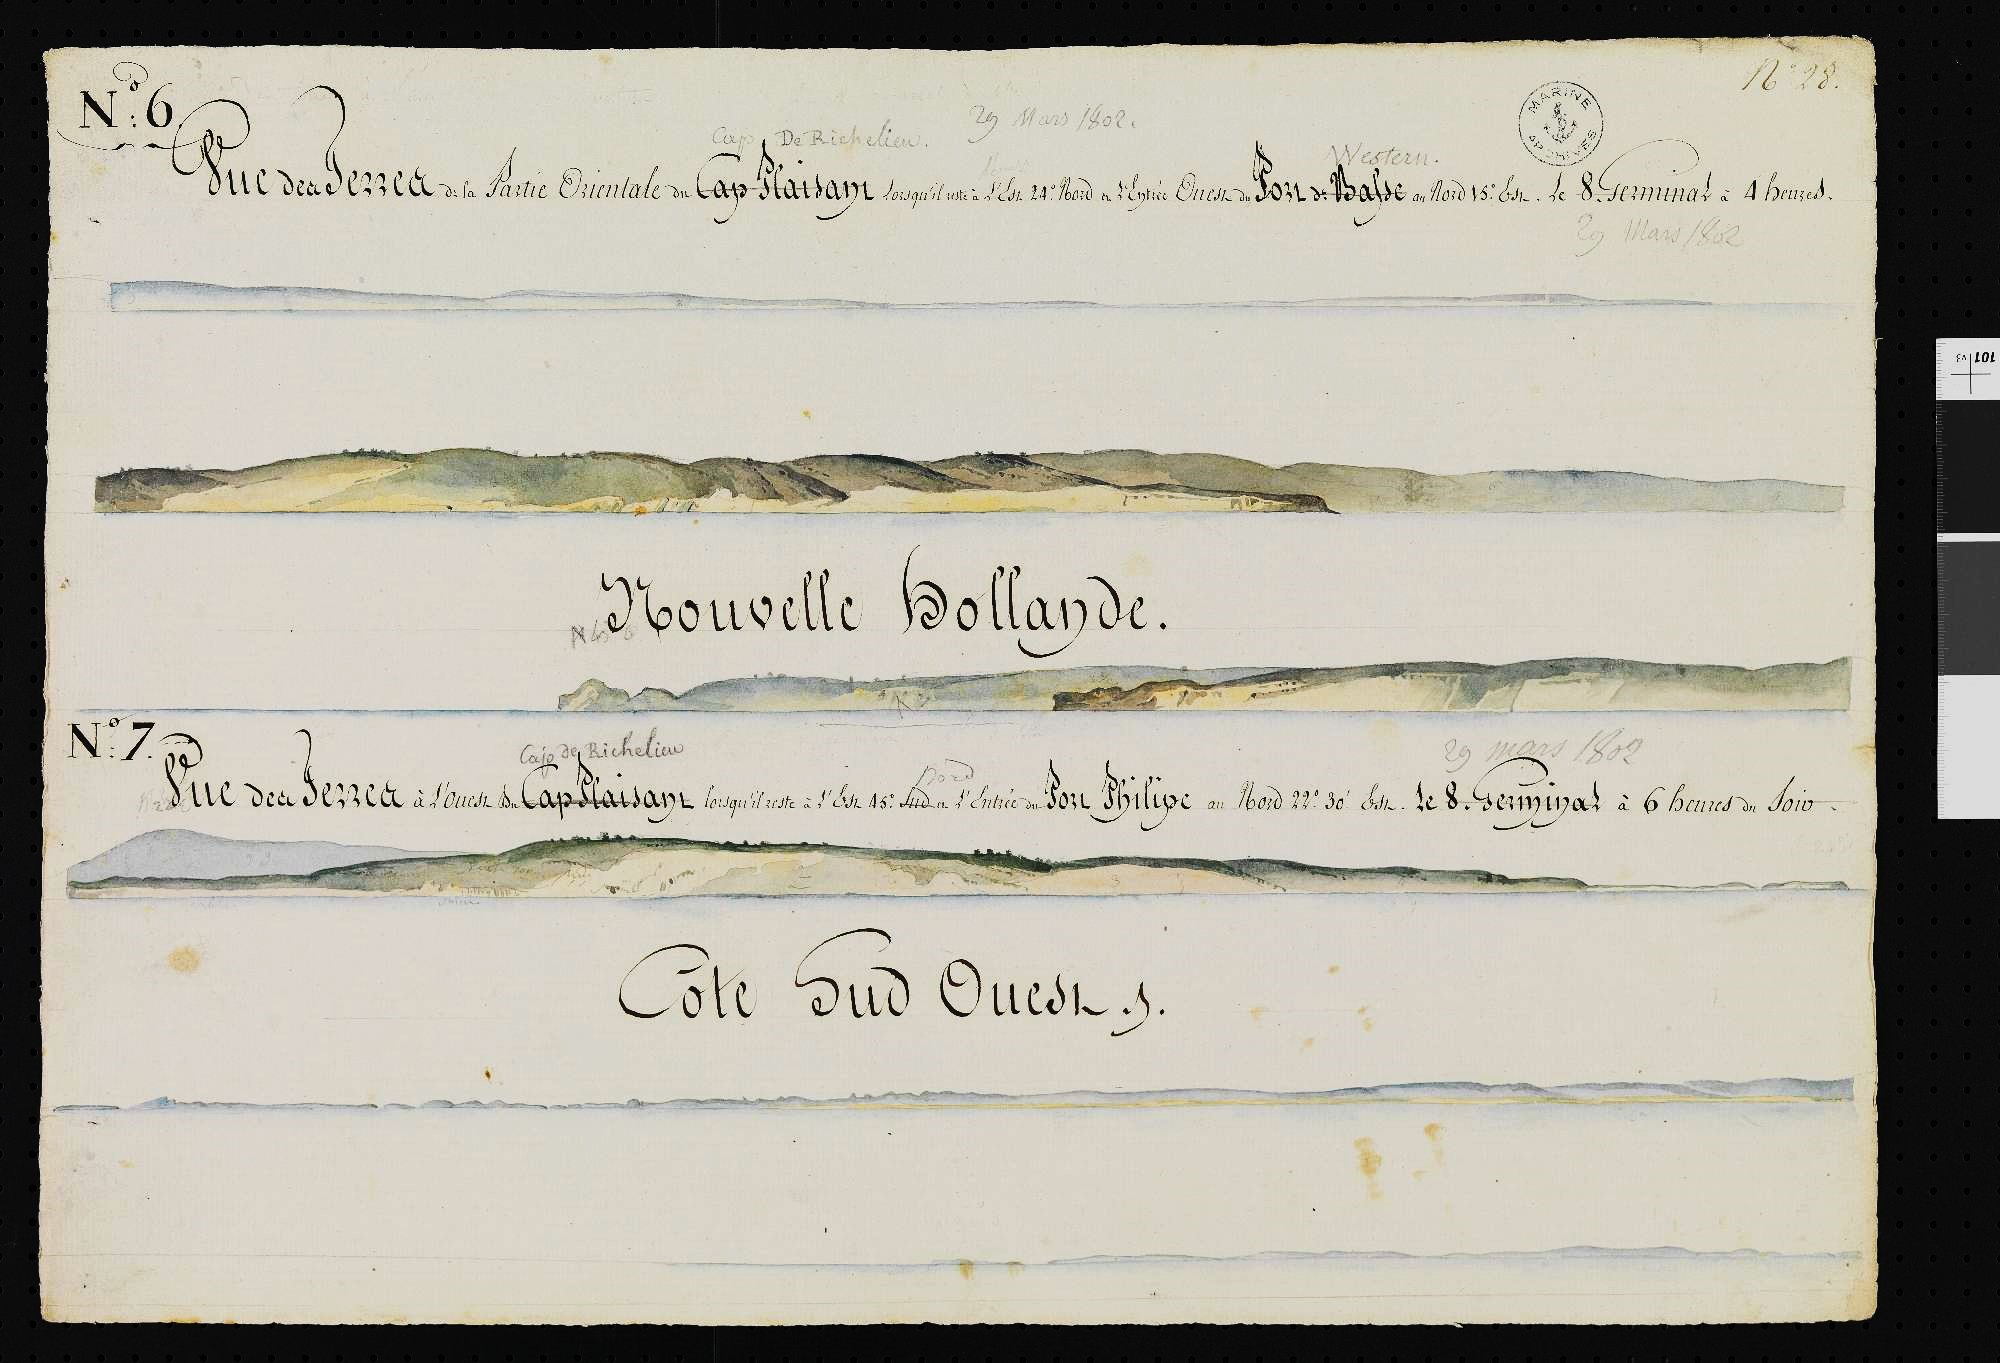 N.º 6.
Nº 28.
29 Mars 1802.
MARINE ARCHIVES
Cap De Richelieu.
Western.
Vue des Terres de la Partie Orientale du Cap Plaisant lorsqu'il reste à l'Est 24.º Nord et l'Entrée Ouest du Port de Basse au Nord 15.º Est. Le 8. Germinal à 4 heures.
29 Mars 1802
Nouvelle Hollande.
N.º 7.
Cap de Richelieu
29 mars 1802
Nord
Vue des Terres à l'Ouest du Cap Plaisant lorsqu'il reste à l'Est 45.º Sud et l'Entrée du Port Philipe au Nord 22.º 30' Est. Le 8. Germinal à 6 heures du Soir.
Côte Sud Ouest
101